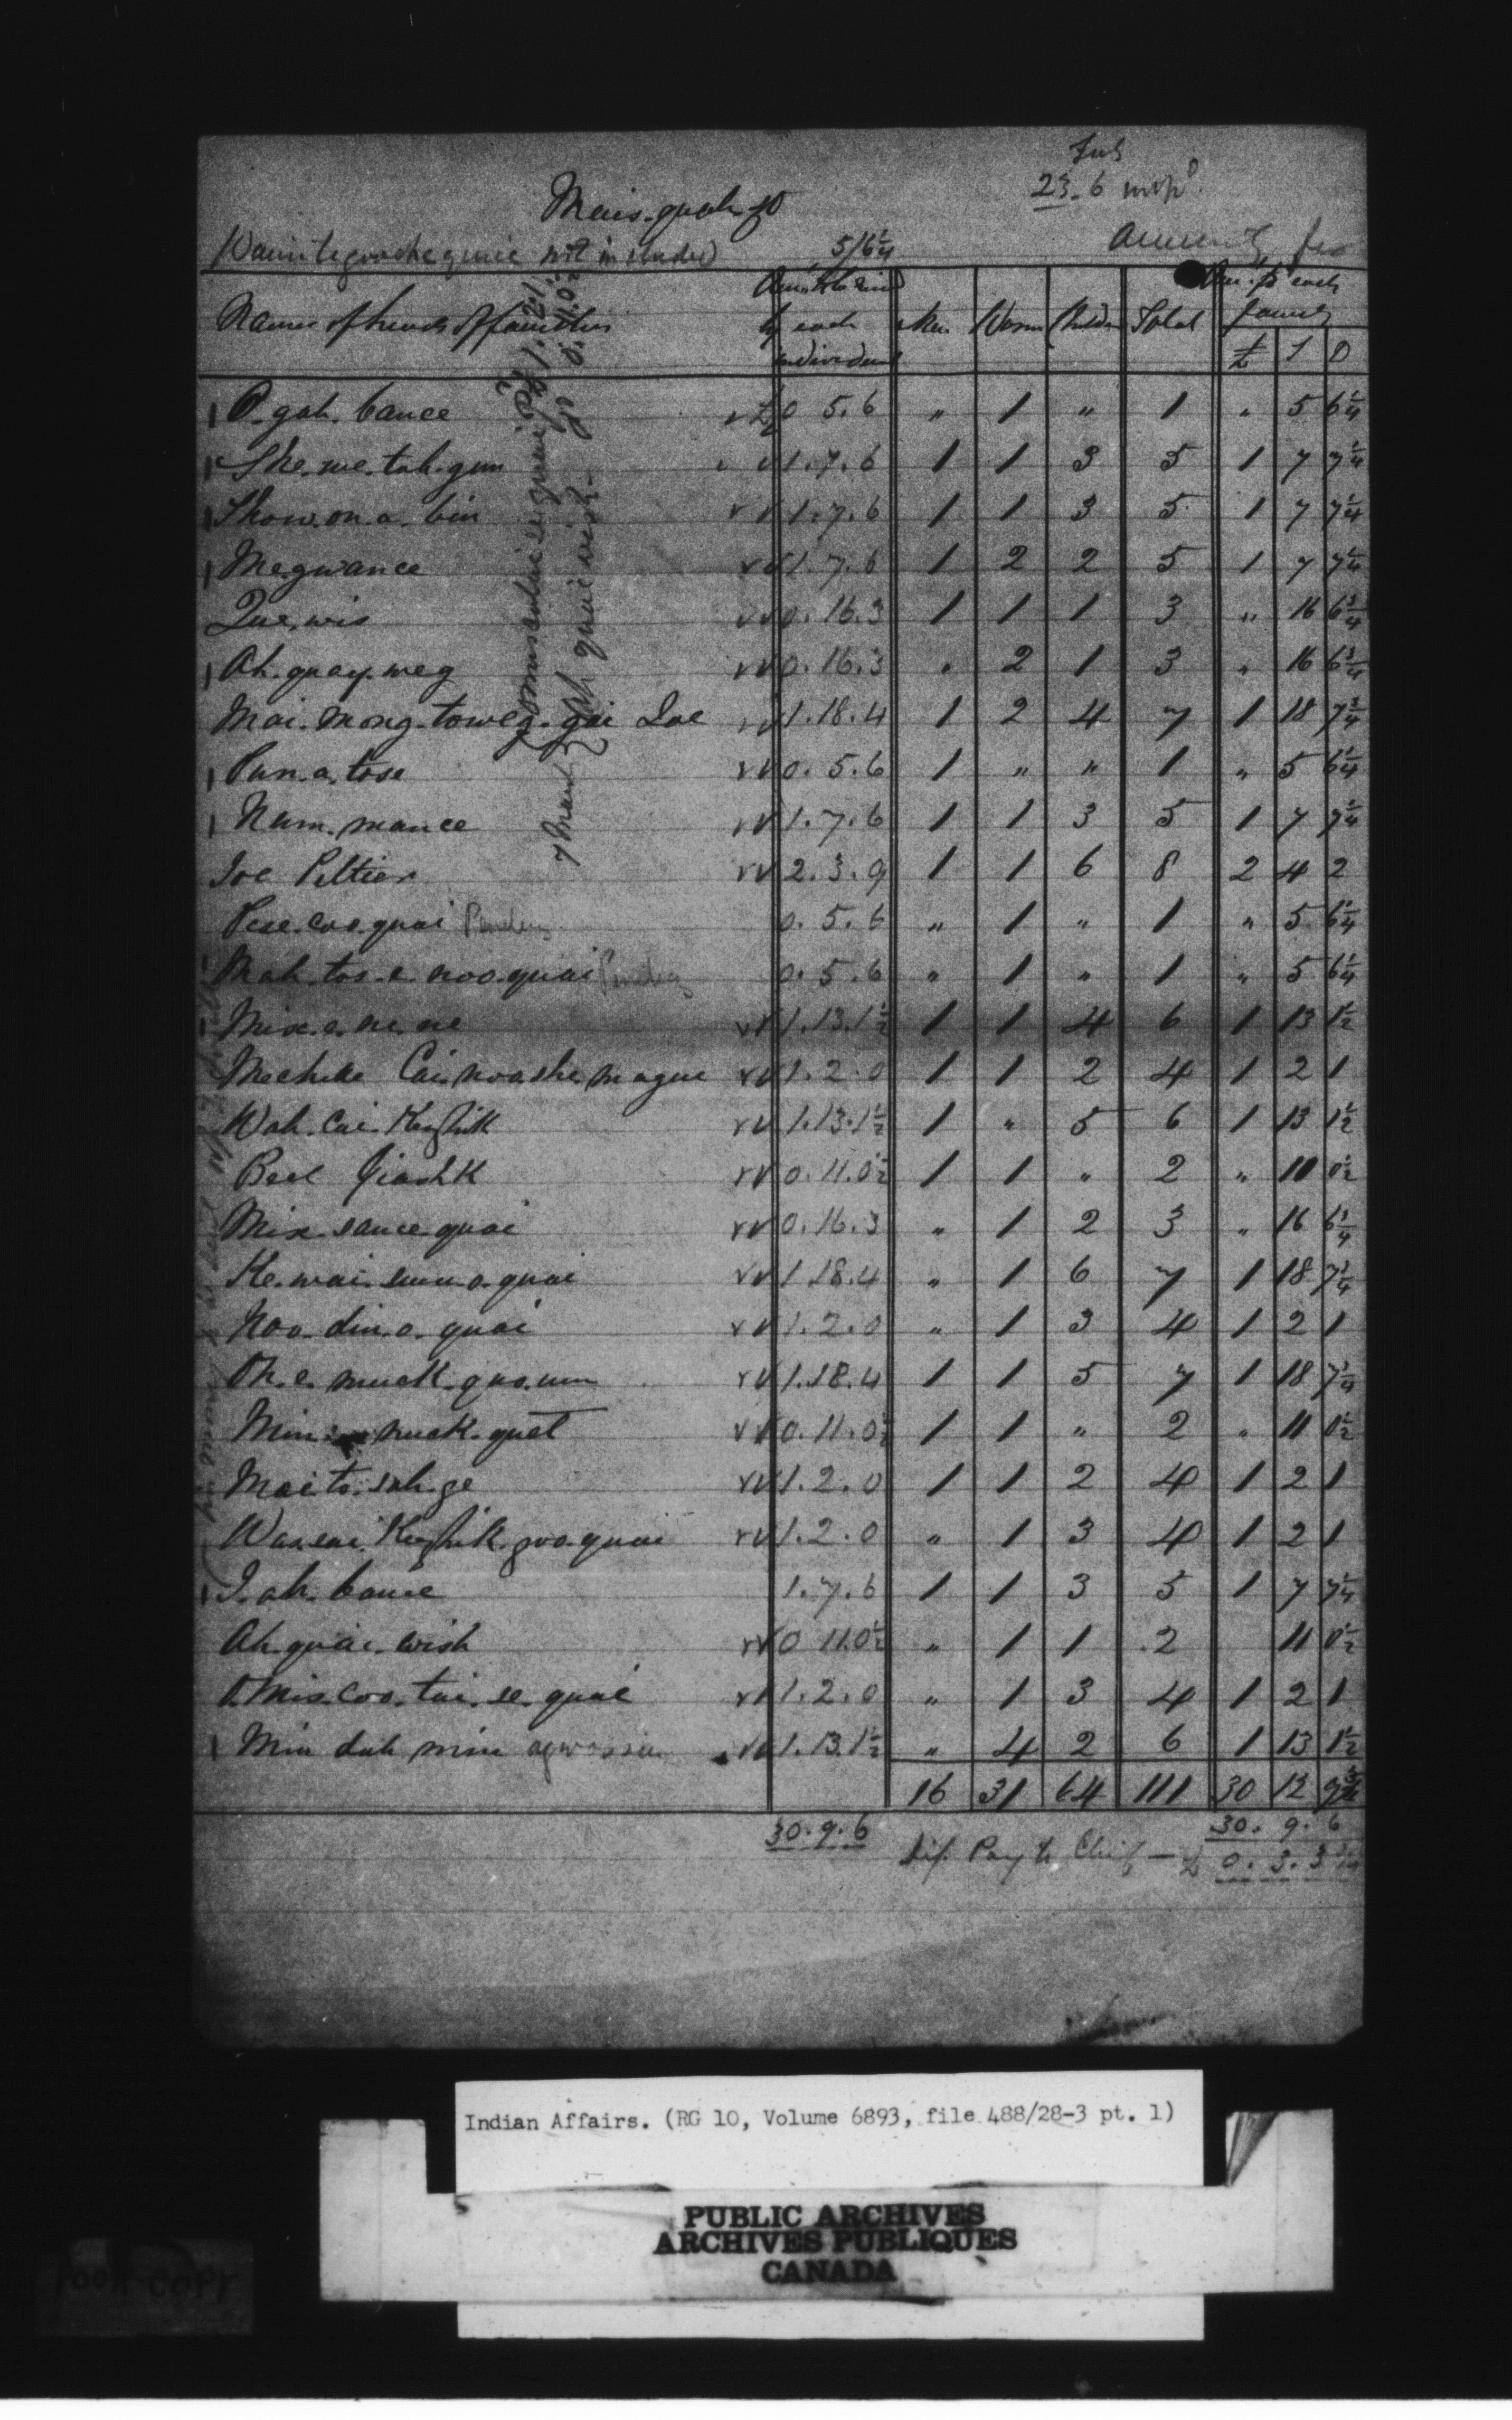 23.6
Mais.quah.go
not included 5/6 1/4
Names of heads of families by each individual Men Women Childn Total Am. p each family
£ S D
O.gah.bance £0 5.6 " 1 " 1 " 5 6 1/4
She.me.tah.gun 1.7.6 1 1 3 5 1 7 7 1/4
Show.on.a.bin 1.7.6 1 1 3 5 1 7 7 1/4
Me.gwance 1.7.6 1 2 2 5 1 7 7 1/4
Lue.wis 0.16.3 1 1 1 3 " 16 6 3/4
Ah.quay.weg 0.16.3 " 2 1 3 " 16 6 3/4
Mai.mong.toweg.gai Joe 1.18.4 1 2 4 7 1 18 7 3/4
Pun.a.tose 0.5.6 1 " " 1 " 5 6 1/4
Num.mance 1.7.6 1 1 3 5 1 7 7 1/4
Joe Peltier 2.3.9 1 1 6 8 2 4 2
Pese.coo.quai 0.5.6 " 1 " 1 " 5 6 1/4
Mah.tos.e.noo.quai 0.5.6 " 1 " 1 " 5 6 1/4
Misc.e.ne.ne 1.13.1 1/2 1 1 4 6 1 13 1 1/2
Mechelle Cai.noashe.mague 1.2.0 1 1 2 4 1 2 1
Wah.cai.Kezhik 1.13.1 1/2 1 " 5 6 1 13 1 1/2
Beel Giashk 0.11.0 1/2 1 1 " 2 " 11 0 1/2
Misc.sance.quai 0.16.3 " 1 2 3 " 16 6 3/4
Ke.wai.sunu.o.quai 1.18.4 " 1 6 7 1 18 7 3/4
Noo.din.o.quai 1.2.0 " 1 3 4 1 2 1
Oh.e.muck.quo.um 1.18.4 1 1 5 7 1 18 7 3/4
Min nuck.guet 0.11.0 1/2 1 1 " 2 " 11 0 1/2
Mai.to.sah.ge 1.2.0 1 1 2 4 1 2 1
Was.sai.Kezhik.goo.quai 1.2.0 " 1 3 4 1 2 1
I.ah.bance 1.7.6 1 1 3 5 1 7 7 1/4
Ah.quai.wish 0 11.0 1/2 " 1 1 2 11 0 1/2
O.Mis.coo.tai.se.quai 1.2.0 " 1 3 4 1 2 1
Min dah min 1.13.1 1/2 " 4 2 6 1 13 1 1/2
16 31 64 111 30 12 9 3/4
30.9.6 30.9.6
dif. Pay to Chief — £ 0.3.3 3/4
Indian Affairs. (RG 10, Volume 6893, file 488/28-3 pt. 1)
PUBLIC ARCHIVES
ARCHIVES PUBLIQUES
CANADA
POOR COPY